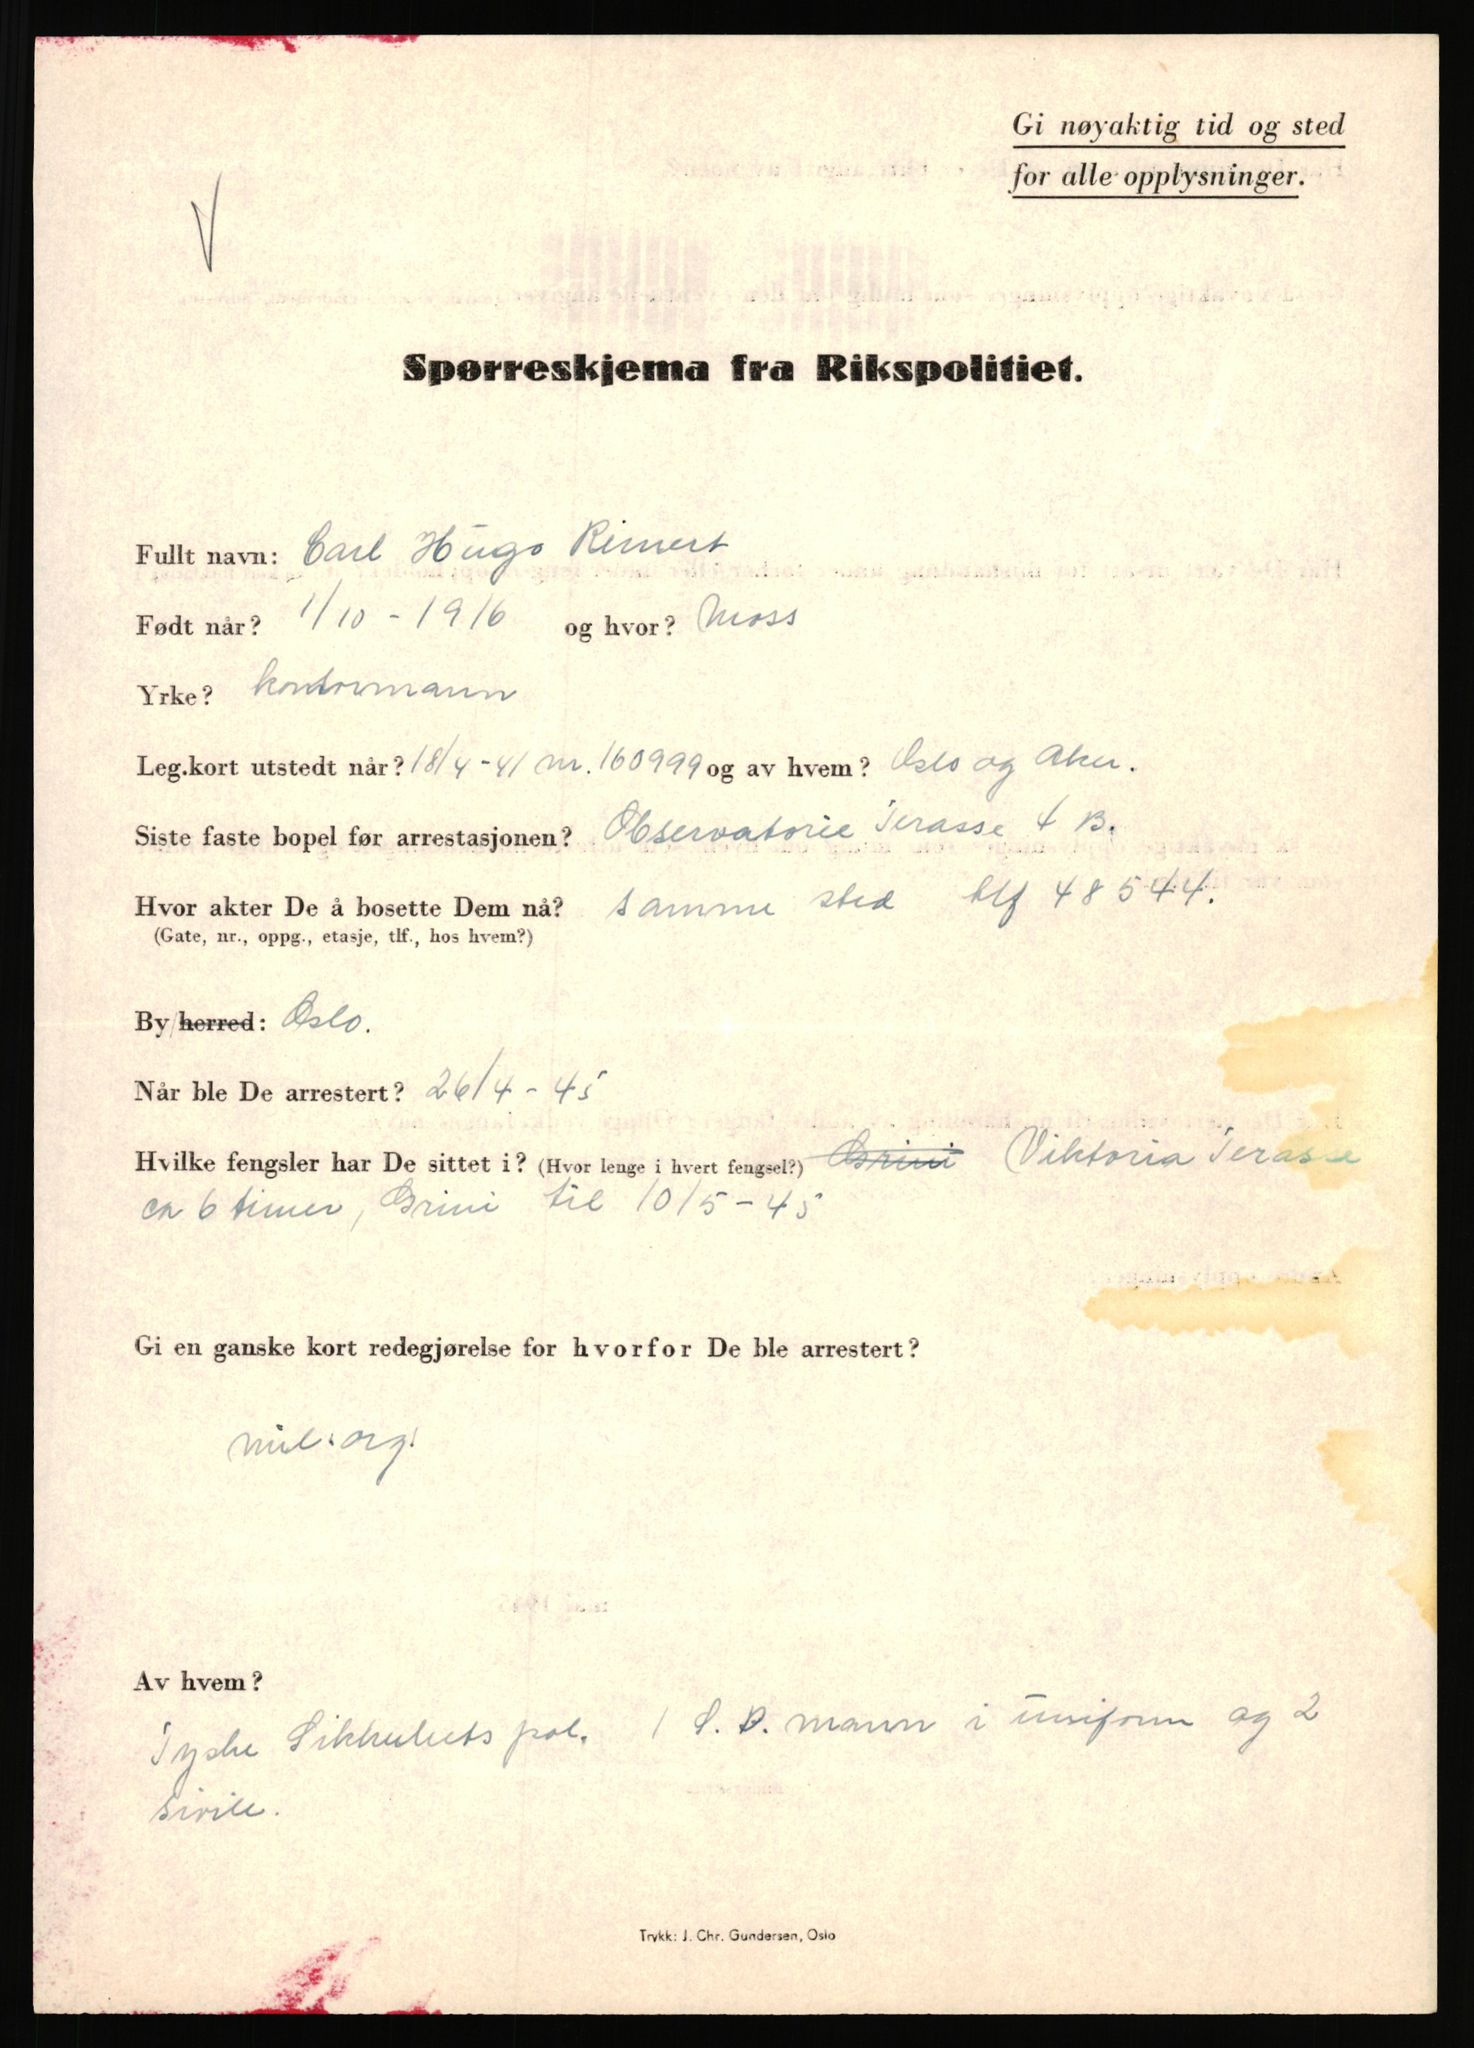 Gi nøyaktig tid og sted
for alle opplysninger.
Spørreskjema fra Rikspolitiet.
Fullt navn: Carl Hugo Reinert
Født når? 1/10 - 1916 og hvor? Moss
Yrke? kontormann
Leg.kort utstedt når? 18/4 - 41 nr. 160999 og av hvem? Oslo og Aker.
Siste faste bopel før arrestasjonen? Observatorie Terasse 4 B.
Hvor akter De å bosette Dem nå? samme sted tlf 48544.
(Gate, nr., oppg., etasje, tlf., hos hvem?)
By/herred: Oslo.
Når ble De arrestert? 26/4 - 45
Hvilke fengsler har De sittet i? (Hvor lenge i hvert fengsel?) Grini Viktoria Terasse
ca 6 timer, Grini til 10/5 - 45
Gi en ganske kort redegjørelse for hvorfor De ble arrestert?
mil. org.
Av hvem?
Tyske Sikkerhets pol. 1 S. D. mann i uniform og 2
sivile.
Trykk: J. Chr. Gundersen, Oslo